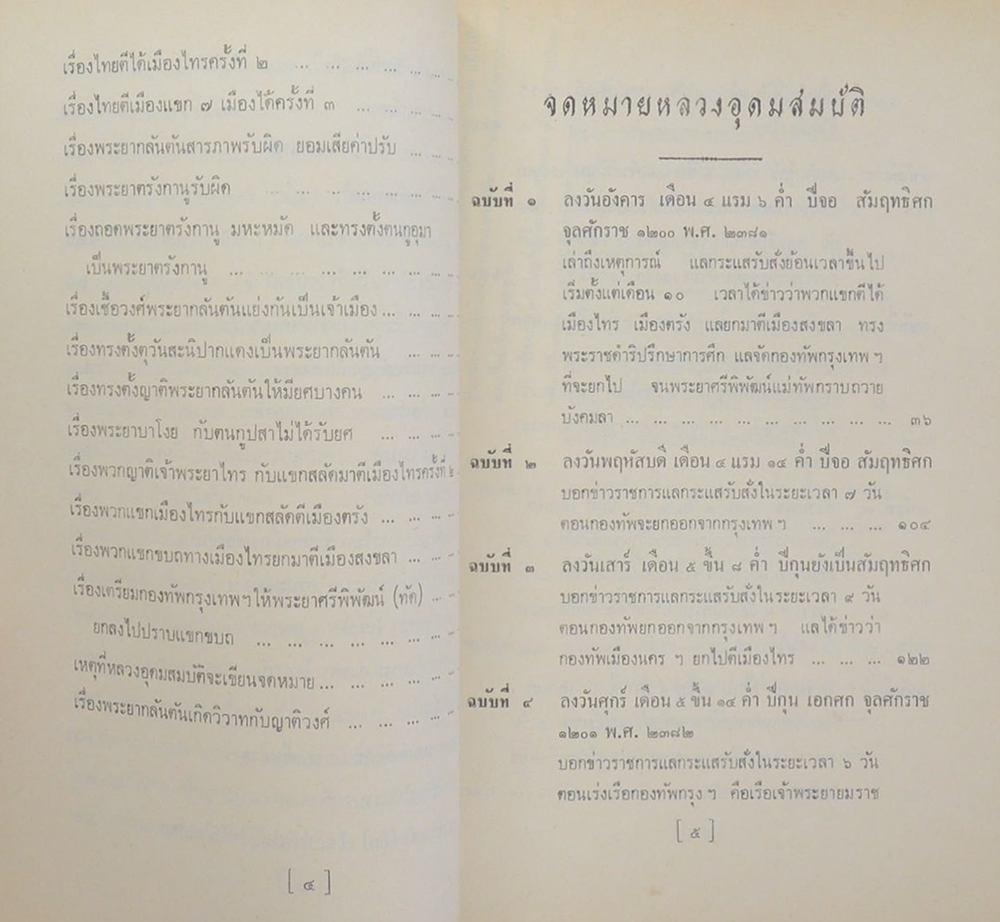 เรื่องไทยตีได้เมืองไทรครั้งที่ ๒ ... ... ... ... ... ...
เรื่องไทยตีเมืองแขก ๗ เมืองได้ครั้งที่ ๓ ... ... ...
เรื่องพระยากลันตันสารภาพรับผิด ยอมเสียค่าปรับ ... ...
เรื่องพระยาตรังกานูรับผิด ... ... ... ... ... ...
เรื่องถอดพระยาตรังกานู มะหะหมัด และทรงตั้งตนกูอุมา
เป็นพระยาตรังกานู ... ... ... ... ... ... ...
เรื่องเชื้อวงศ์พระยากลันตันแย่งกันเป็นเจ้าเมือง ... ... ...
เรื่องทรงตั้งตุวันสะนิปากแดงเป็นพระยากลันตัน ... ...
เรื่องทรงตั้งญาติพระยากลันตันให้มียศบางคน ... ... ...
เรื่องพระยาบาโงย กับตนกูปสาไม่ได้รับยศ ... ... ...
เรื่องพวกญาติเจ้าพระยาไทร กับแขกสลัดมาตีเมืองไทรครั้งที่ ๒
เรื่องพวกแขกเมืองไทรกับแขกสลัดตีเมืองตรัง ... ... ...
เรื่องพวกแขกขบถทางเมืองไทรยกมาตีเมืองสงขลา ... ...
เรื่องเตรียมกองทัพกรุงเทพฯให้พระยาศรีพิพัฒน์ (ทัด) ... ...
ยกลงไปปราบแขกขบถ ... ... ... ... ... ...
เหตุที่หลวงอุดมสมบัติจะเขียนจดหมาย ... ... ... ... ...
เรื่องพระยากลันตันเกิดวิวาทกับญาติวงศ์ ... ... ... ...
[ ๔ ]
จดหมายหลวงอุดมสมบัติ
ฉบับที่ ๑ ลงวันอังคาร เดือน ๔ แรม ๖ ค่ำ ปีจอ สัมฤทธิศก
จุลศักราช ๑๒๐๐ พ.ศ. ๒๓๘๑
เล่าถึงเหตุการณ์ แลกระแสรับสั่งย้อนเวลาขึ้นไป
เริ่มตั้งแต่เดือน ๑๐ เวลาได้ข่าวว่าพวกแขกตีได้
เมืองไทร เมืองตรัง แลยกมาตีเมืองสงขลา ทรง
พระราชดำริปรึกษาการศึก แลจัดกองทัพกรุงเทพ ฯ
ที่จะยกไป จนพระยาศรีพิพัฒน์แม่ทัพกราบถวาย
บังคมลา ... ... ... ... ... ... ... ... ... ๓๖
ฉบับที่ ๒ ลงวันพฤหัสบดี เดือน ๔ แรม ๑๔ ค่ำ ปีจอ สัมฤทธิศก
บอกข่าวราชการแลกระแสรับสั่งในระยะเวลา ๗ วัน
ตอนกองทัพจะยกออกจากกรุงเทพ ฯ ... ... ... ๑๐๔
ฉบับที่ ๓ ลงวันเสาร์ เดือน ๕ ขึ้น ๘ ค่ำ ปีกุนยังเป็นสัมฤทธิศก
บอกข่าวราชการแลกระแสรับสั่งในระยะเวลา ๙ วัน
ตอนกองทัพยกออกจากกรุงเทพ ฯ แลได้ข่าวว่า
กองทัพเมืองนคร ฯ ยกไปตีเมืองไทร ... ... ... ๑๒๒
ฉบับที่ ๔ ลงวันศุกร์ เดือน ๕ ขึ้น ๑๔ ค่ำ ปีกุน เอกศก จุลศักราช
๑๒๐๑ พ.ศ. ๒๓๘๒
บอกข่าวราชการแลกระแสรับสั่งในระยะเวลา ๖ วัน
ตอนเร่งเรือกองทัพกรุง ฯ คือเรือเจ้าพระยายมราช
[ ๕ ]